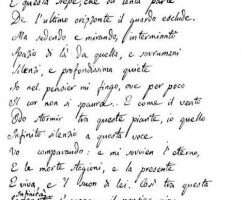 E questa siepe, che da tanta parte
De l'ultimo orizzonte il guardo esclude.
Ma sedendo e mirando, interminati
Spazio di là da quella, e sovrumani
Silenzi, e profondissima quiete
Io nel pensier mi fingo, ove per poco
Il cor non si spaura. E come il vento
Odo stormir tra queste piante, io quello
Infinito silenzio a questa voce
Vo comparando: e mi sovvien l'eterno,
E le morte stagioni, e la presente
E viva, e 'l suon di lei. Così tra questa